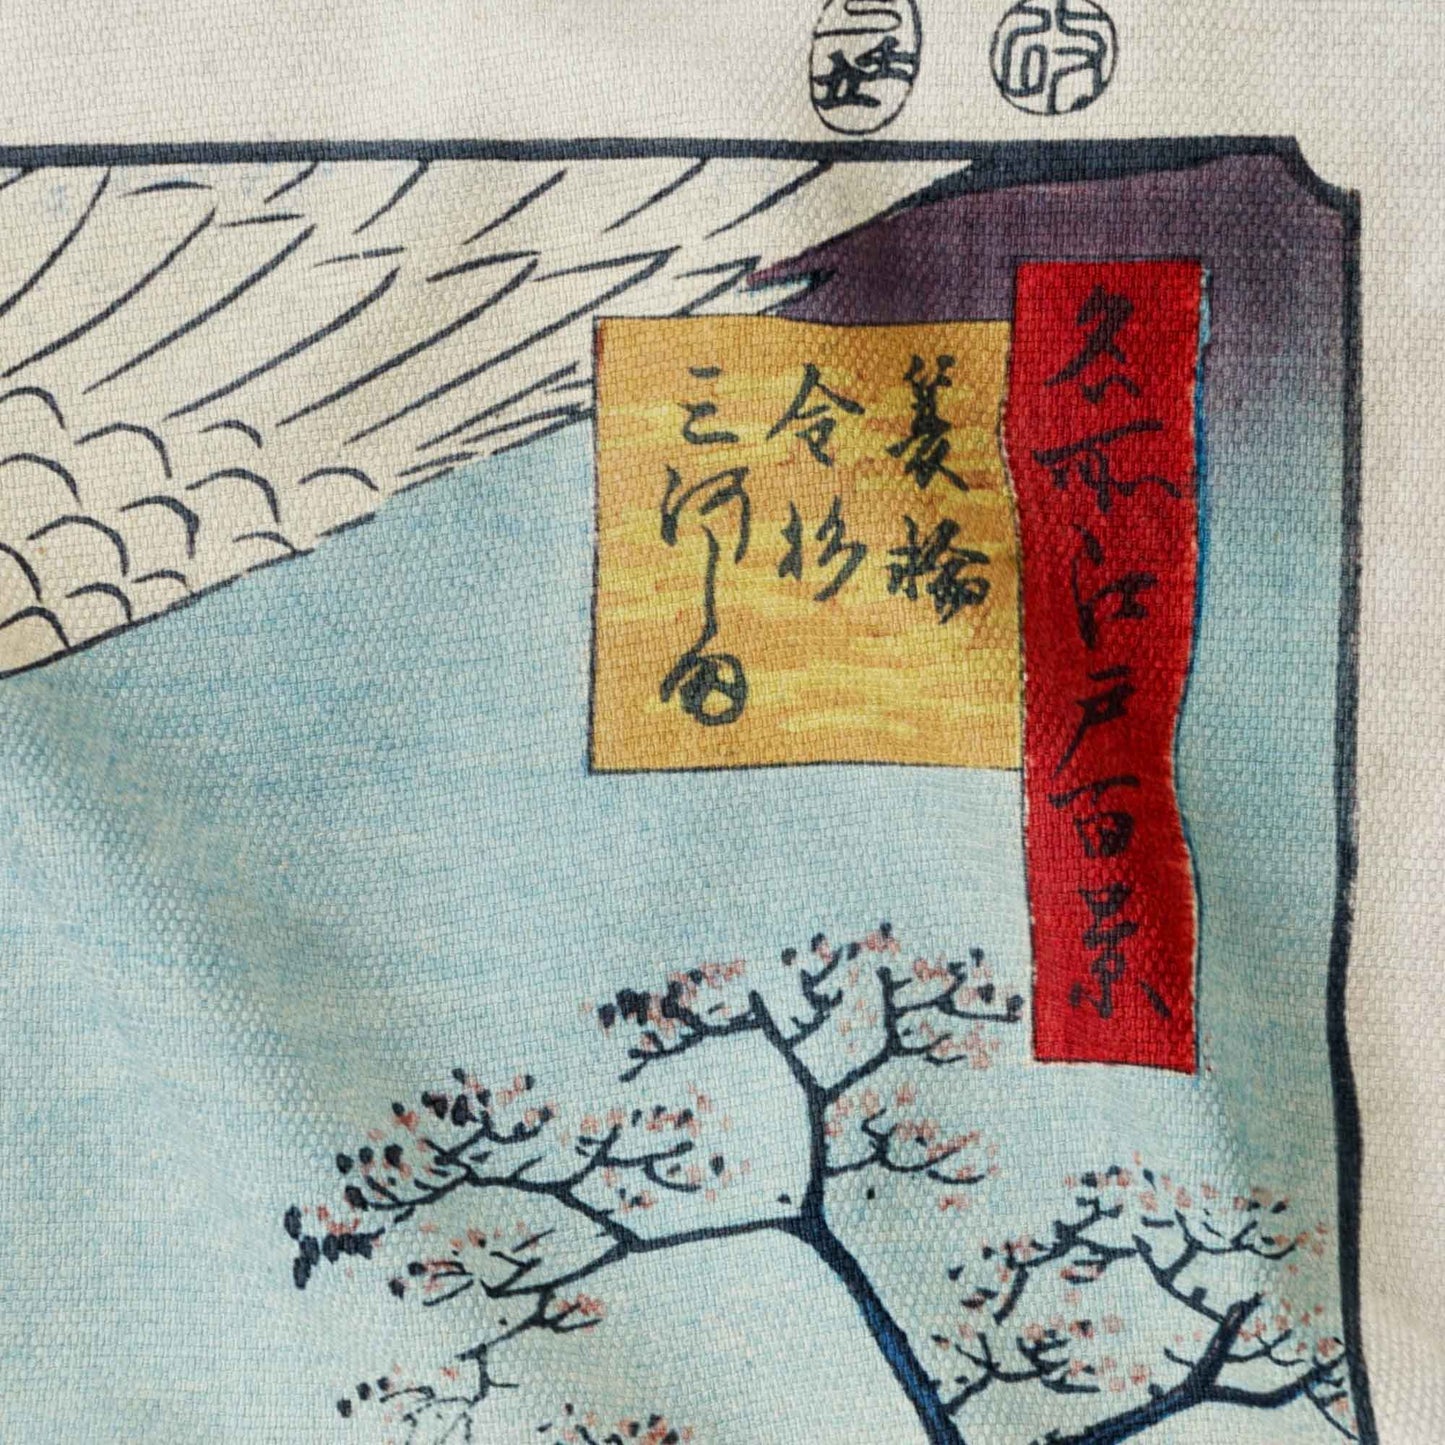 改
名所江戸百景
簑輪
金杉
三河しま